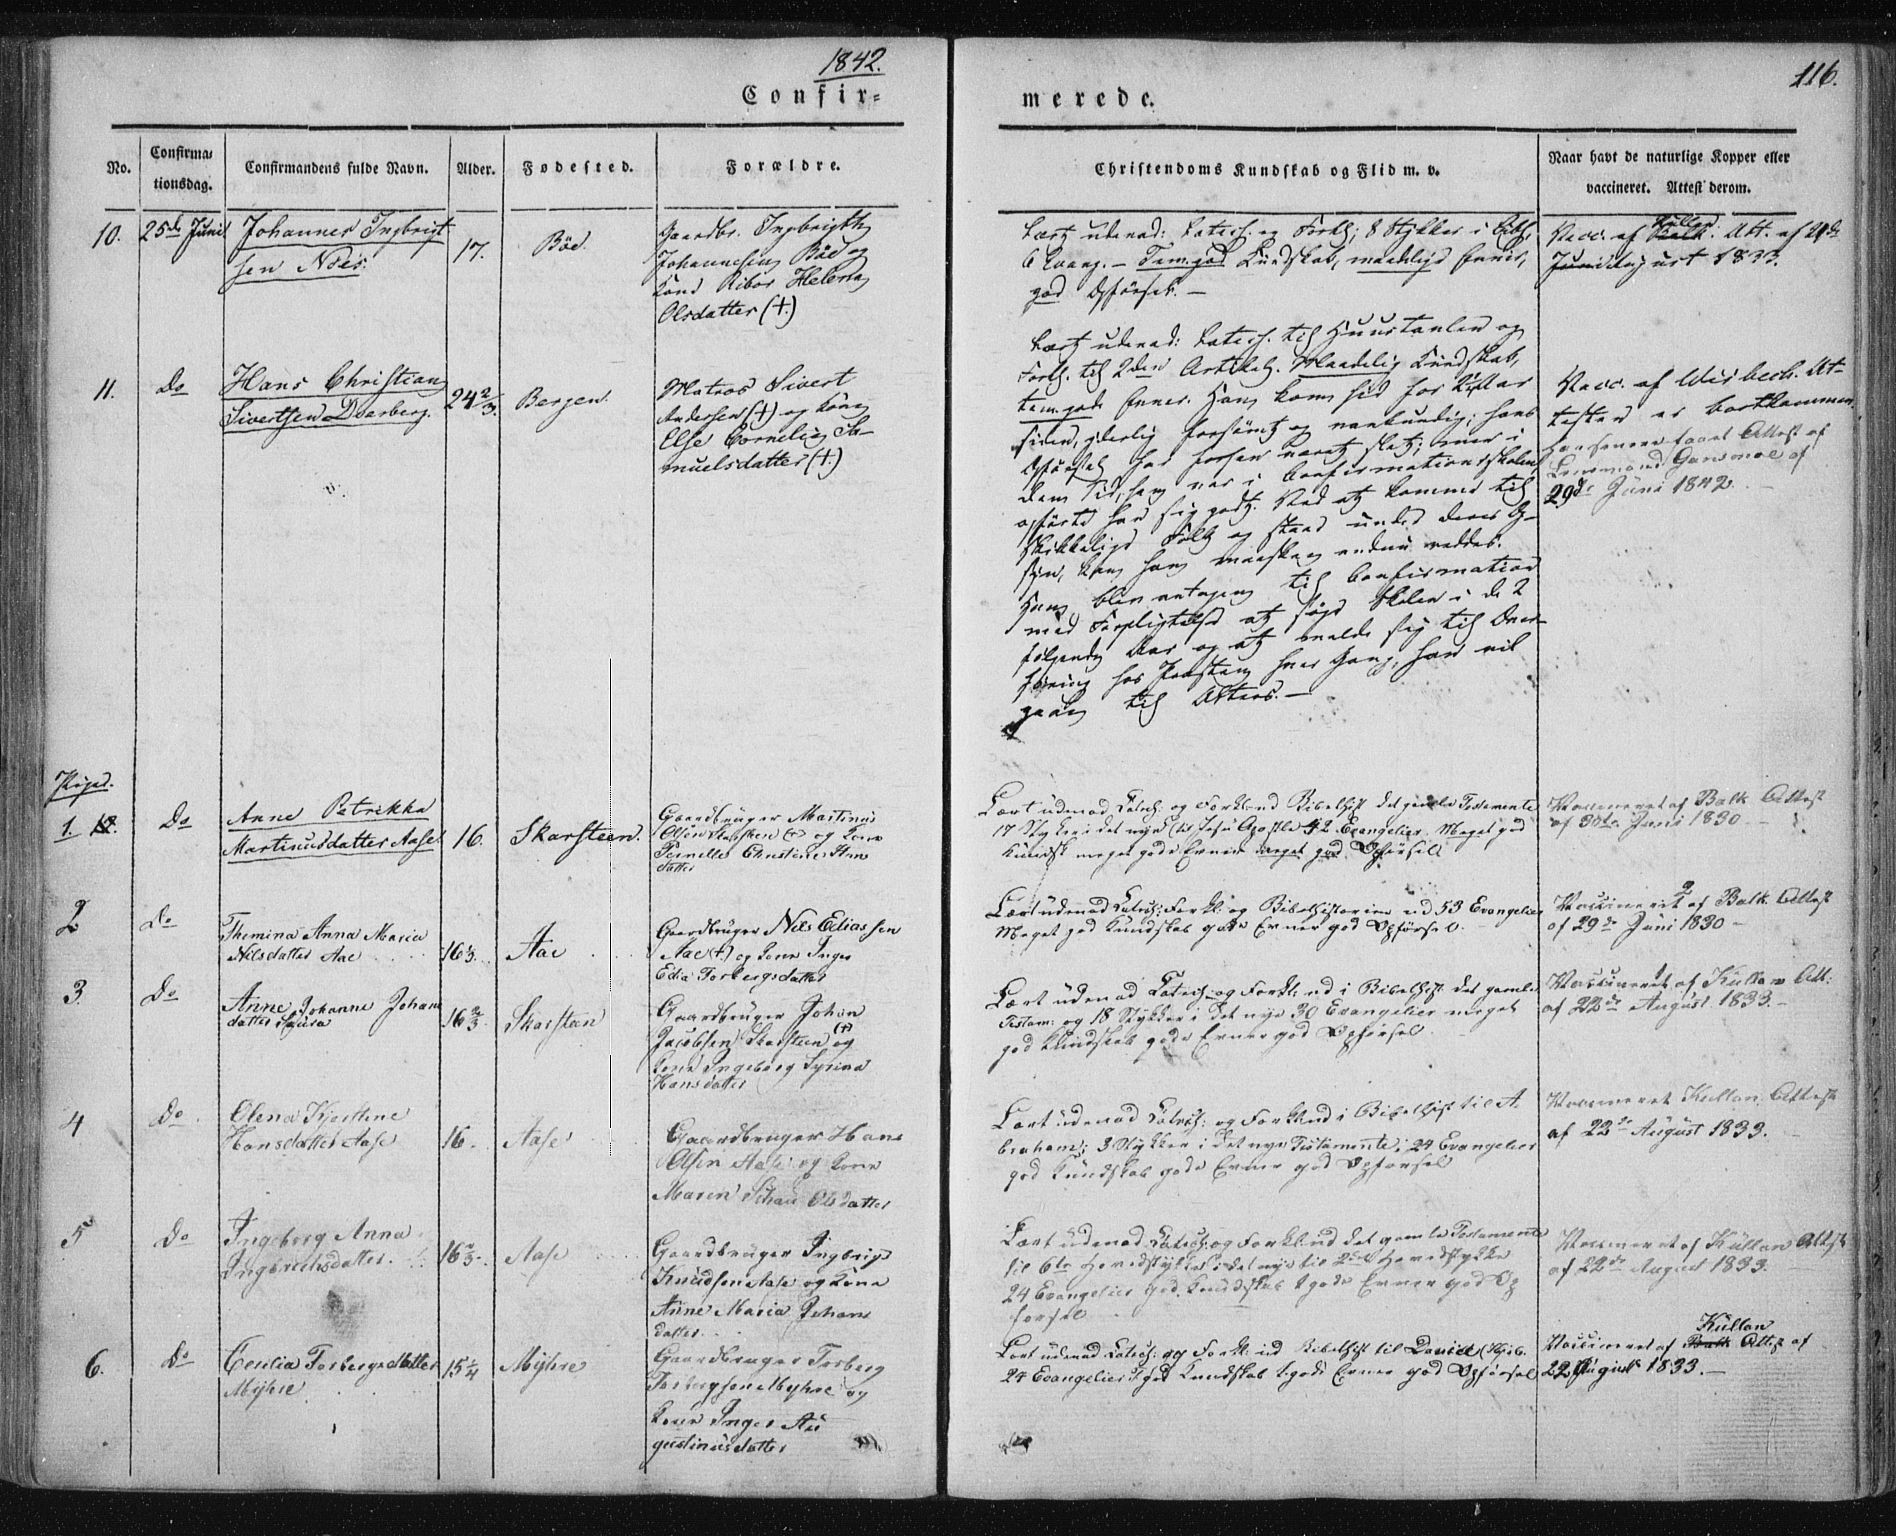 1842.
116.
Confir=
merede.
No.
Confirma=
tionsdag.
Confirmandens fulde Navn.
Alder.
Fødested.
Forældre.
Christendoms Kundskab og Flid m. v.
Naar havt de naturlige Kopper eller
vaccineret. Attest derom.
10. 25de Juni
Johannes Ingbrigt
sen
17.
Böe.
Gaardbr. Ingbrigth
Johannesen Böe og
Kone Helena
Olsdatter (+)
Lært udenad: Catech. og Forkl; 8 Stykker i Bibl.
6 Evang. – Tem. god Kundskab, maadelige Evner,
god Opførsel. –
Vacc. af Balk Kullan: Att. af
August 1833.
11. Do
Hans Christian
Sivertsen
24 2/3.
Bergen.
Matros Sivert
Andersen (+) og Kone
Else Cornelia Sa-
muelsdatter (+)
Lært udenad: Catech. til Huustavlen og
Forkl. til 2den Artikel. Maadelig Kundskab,
tem. gode Evner. Han kom hid for
siden, yderlig forsømt og vankundig; hans
Opførsel har forhen været slet; men i
den Tid, han var i Confirmationsskolen
opførte han sig godt. Ved at komme til
skikkelige Folk og staae under deres Op-
syn, kan han maaskee endnu reddes.
Han blev antagen til Confirmation
med Forpligtelse at søge Skolen i de 2
følgende Aar og at melde sig til Over-
høring hos Præsten hver Gang, han vil
gaae til Alters. –
Vacc. af Wisbech. At-
testen er bortkommen.
Attest af
Lensmand af
29de Juni 1842.
Piger.
1. 12. Do
Anne Petrikka
Martinusdatter Aase
16.
Skarsteen.
Gaardbruger Martinus
Olsen Skarsteen (+) og Kone
Pernelle Christine Hans
datter
Lært udenad Catech: og Forkl: ud Bibelhist det gamle Testamente
17 Stykker i det nye (til Jesu Apostle 42 Evangelier. Meget god
Kundsk meget gode Evner meget god Opførsel
Vaccineret af Balk Attest
af 30te Juni 1830 –
2 Do
Themina Anna Maria
Nilsdatter Aae
16 1/3.
Aae
Gaardbruger Nils Eliassen
Aae (+) og Kone Inger
Edia Torbergsdatter
Lært udenad Catech: Forkl: og Bibelhistorien ud 53 Evangelier
Meget god Kundskab gode Evner god Opførsel.
Vaccineret af Balk Attest
af 29de Juni 1830 –
3. Do
Anne Johanne Johans
datter
16 2/3.
Skarsteen
Gaardbruger Johan
Jacobsen Skarsteen (+) og
Kone Ingeborg Syrina
Hansdatter
Lært udenad Catech: og Forkl: ud i Bibelhist det gamle
Testam: og 18 Stykker i det nye 30 Evangelier meget
god Kundskab gode Evner god Opførsel
Vaccineret af Kullan Att:
af 22de August 1833. –
4 Do.
Olena Kjerstine
Hansdatter Aase
16.
Aase
Gaardbruger Hans
Olsen Aase og Kone
Maren Olsdatter
Lært udenad Catech: og Forkl: ud i Bibelhist til A
braham; 3 Stykker i det nye Testamente; 24 Evangelier
god Kundskab gode Evner god Opførsel
Vaccineret Kullan: Attest
af 22de August 1833.
5 Do
Ingeborg Anna
Ingbrigtsdatter.
16 2/3.
Aase
Gaardbruger Ingbrigt
Knudsen Aase og Kone
Anne Maria Johans
datter.
Lært udenad Catech: og Forkl: ud det gamle Testamente
til 6te Hovedstykke i det nye til 2det Hovedstykke
24 Evangelier god Kundskab gode Evner god Op
førsel
Vaccineret af Kullan Attest
af 22de August 1833.
6. Do
Cecilia Torbergsdatter
Myhre
15 1/4
Myhre
Gaardbruger Torberg
Torbergsen Myhre og
Kone Inger Au
gustinusdatter
Lært udenad Catech: og Forkl: ud Bibelhist til David
24 Evangelier god Kundskab gode Evner god Opførsel
Kullan
Vaccineret af Balk Attest af
22 August 1833. –